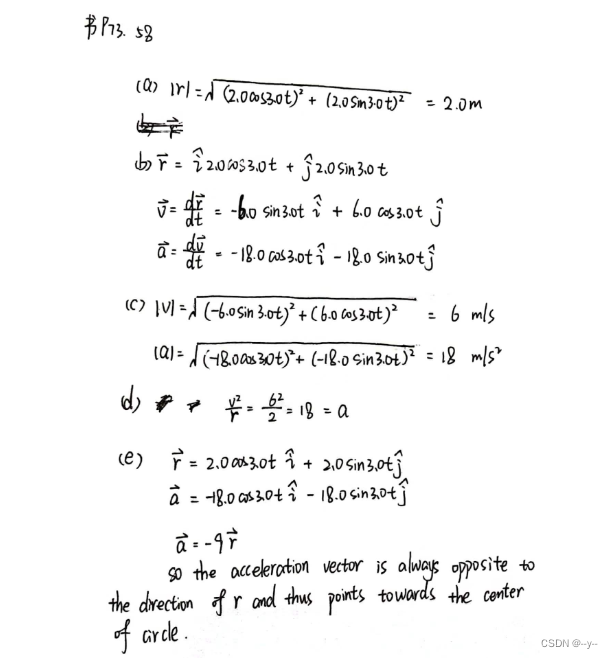 书P73. 58
(a) |r| = √(2.0cos3.0t)² + (2.0sin3.0t)² = 2.0m
b) r⃗ = î 2.0cos3.0t + ĵ 2.0sin3.0t
v⃗ = dr⃗/dt = -6.0 sin3.0t î + 6.0 cos3.0t ĵ
a⃗ = dv⃗/dt = -18.0 cos3.0t î - 18.0 sin3.0t ĵ
(c) |v| = √(-6.0sin3.0t)² + (6.0cos3.0t)² = 6 m/s
|a| = √(-18.0cos3.0t)² + (-18.0sin3.0t)² = 18 m/s²
d) v²/r = 6²/2 = 18 = a
(e) r⃗ = 2.0cos3.0t î + 2.0sin3.0t ĵ
a⃗ = -18.0cos3.0t î - 18.0sin3.0t ĵ
a⃗ = -9r⃗
so the acceleration vector is always opposite to
the direction of r and thus points towards the center
of circle.
CSDN @--y--